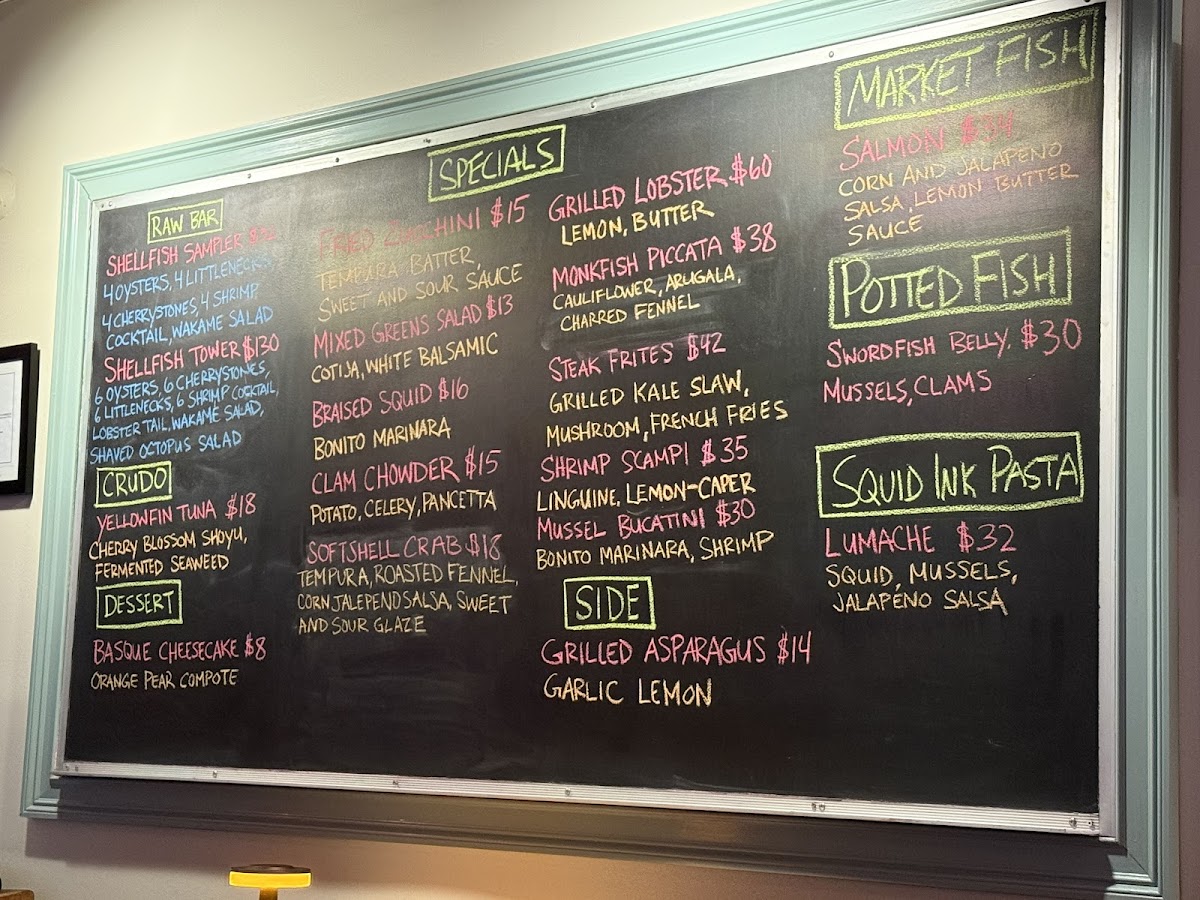 RAW BAR
SHELLFISH SAMPLER
4 OYSTERS, 4 LITTLENECKS,
4 CHERRYSTONES, 4 SHRIMP
COCKTAIL, WAKAME SALAD
SHELLFISH TOWER $130
6 OYSTERS, 6 CHERRYSTONES,
6 LITTLENECKS, 6 SHRIMP COCKTAIL,
LOBSTER TAIL, WAKAME SALAD,
SHAVED OCTOPUS SALAD
CRUDO
YELLOWFIN TUNA $18
CHERRY BLOSSOM SHOYU,
FERMENTED SEAWEED
DESSERT
BASQUE CHEESECAKE $8
ORANGE PEAR COMPOTE
SPECIALS
FRIED ZUCCHINI $15
TEMPURA BATTER,
SWEET AND SOUR SAUCE
MIXED GREENS SALAD $13
COTIJA, WHITE BALSAMIC
BRAISED SQUID $16
BONITO MARINARA
CLAM CHOWDER $15
POTATO, CELERY, PANCETTA
SOFTSHELL CRAB $18
TEMPURA, ROASTED FENNEL,
CORN JALEPENO SALSA, SWEET
AND SOUR GLAZE
GRILLED LOBSTER $60
LEMON, BUTTER
MONKFISH PICCATA $38
CAULIFLOWER, ARUGALA,
CHARRED FENNEL
STEAK FRITES $42
GRILLED KALE SLAW,
MUSHROOM, FRENCH FRIES
SHRIMP SCAMPI $35
LINGUINE, LEMON-CAPER
MUSSEL BUCATINI $30
BONITO MARINARA, SHRIMP
SIDE
GRILLED ASPARAGUS $14
GARLIC LEMON
MARKET FISH
SALMON $34
CORN AND JALAPENO
SALSA, LEMON BUTTER
SAUCE
POTTED FISH
SWORDFISH BELLY, $30
MUSSELS, CLAMS
SQUID INK PASTA
LUMACHE $32
SQUID, MUSSELS,
JALAPEÑO SALSA